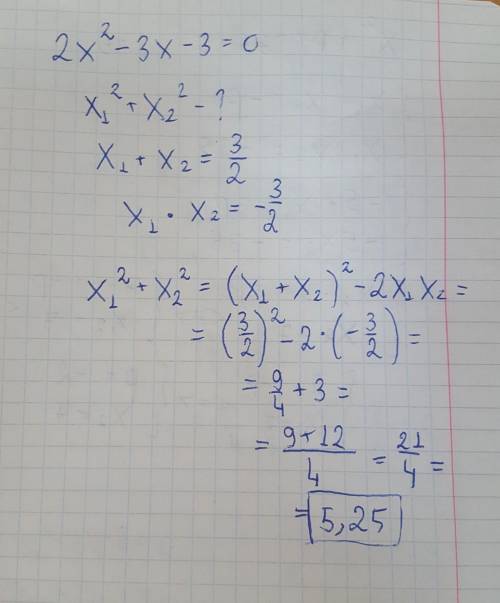 2x² - 3x - 3 = 0
x₁² + x₂² - ?
x₁ + x₂ = 3/2
x₁ · x₂ = -3/2
x₁² + x₂² = (x₁ + x₂)² - 2x₁x₂ =
= (3/2)² - 2·(-3/2) =
= 9/4 + 3 =
= (9+12)/4 = 21/4 =
= 5,25